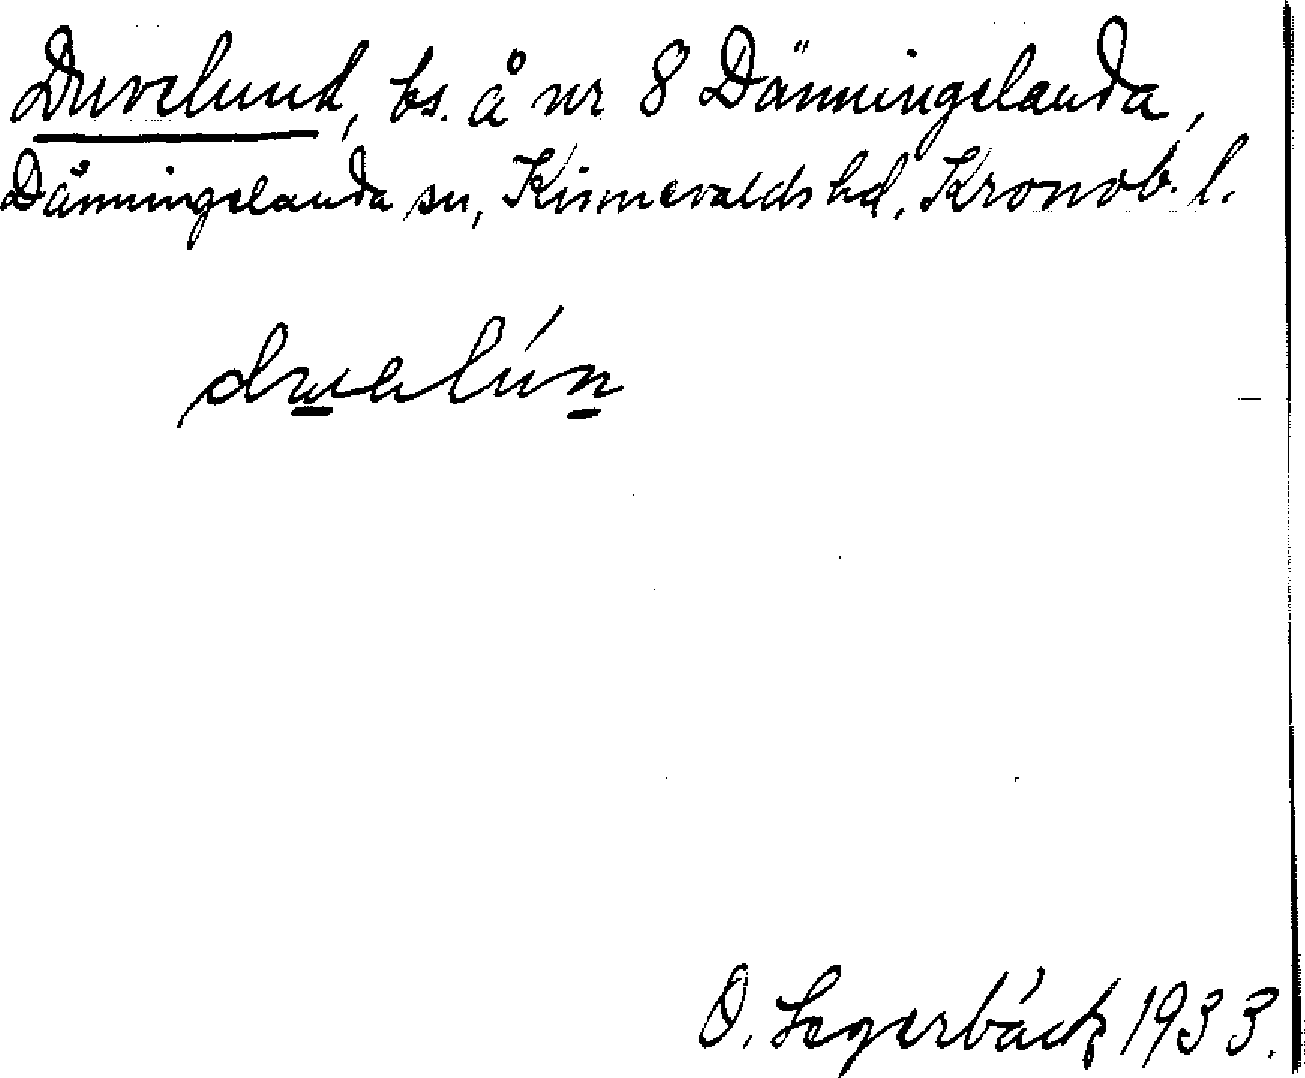 Duvelund, bs. å nr 8 Dänningelanda,
Dänningelanda sn, Kinnevalds hd, Kronob. l.
O. Segerbäck 1933.